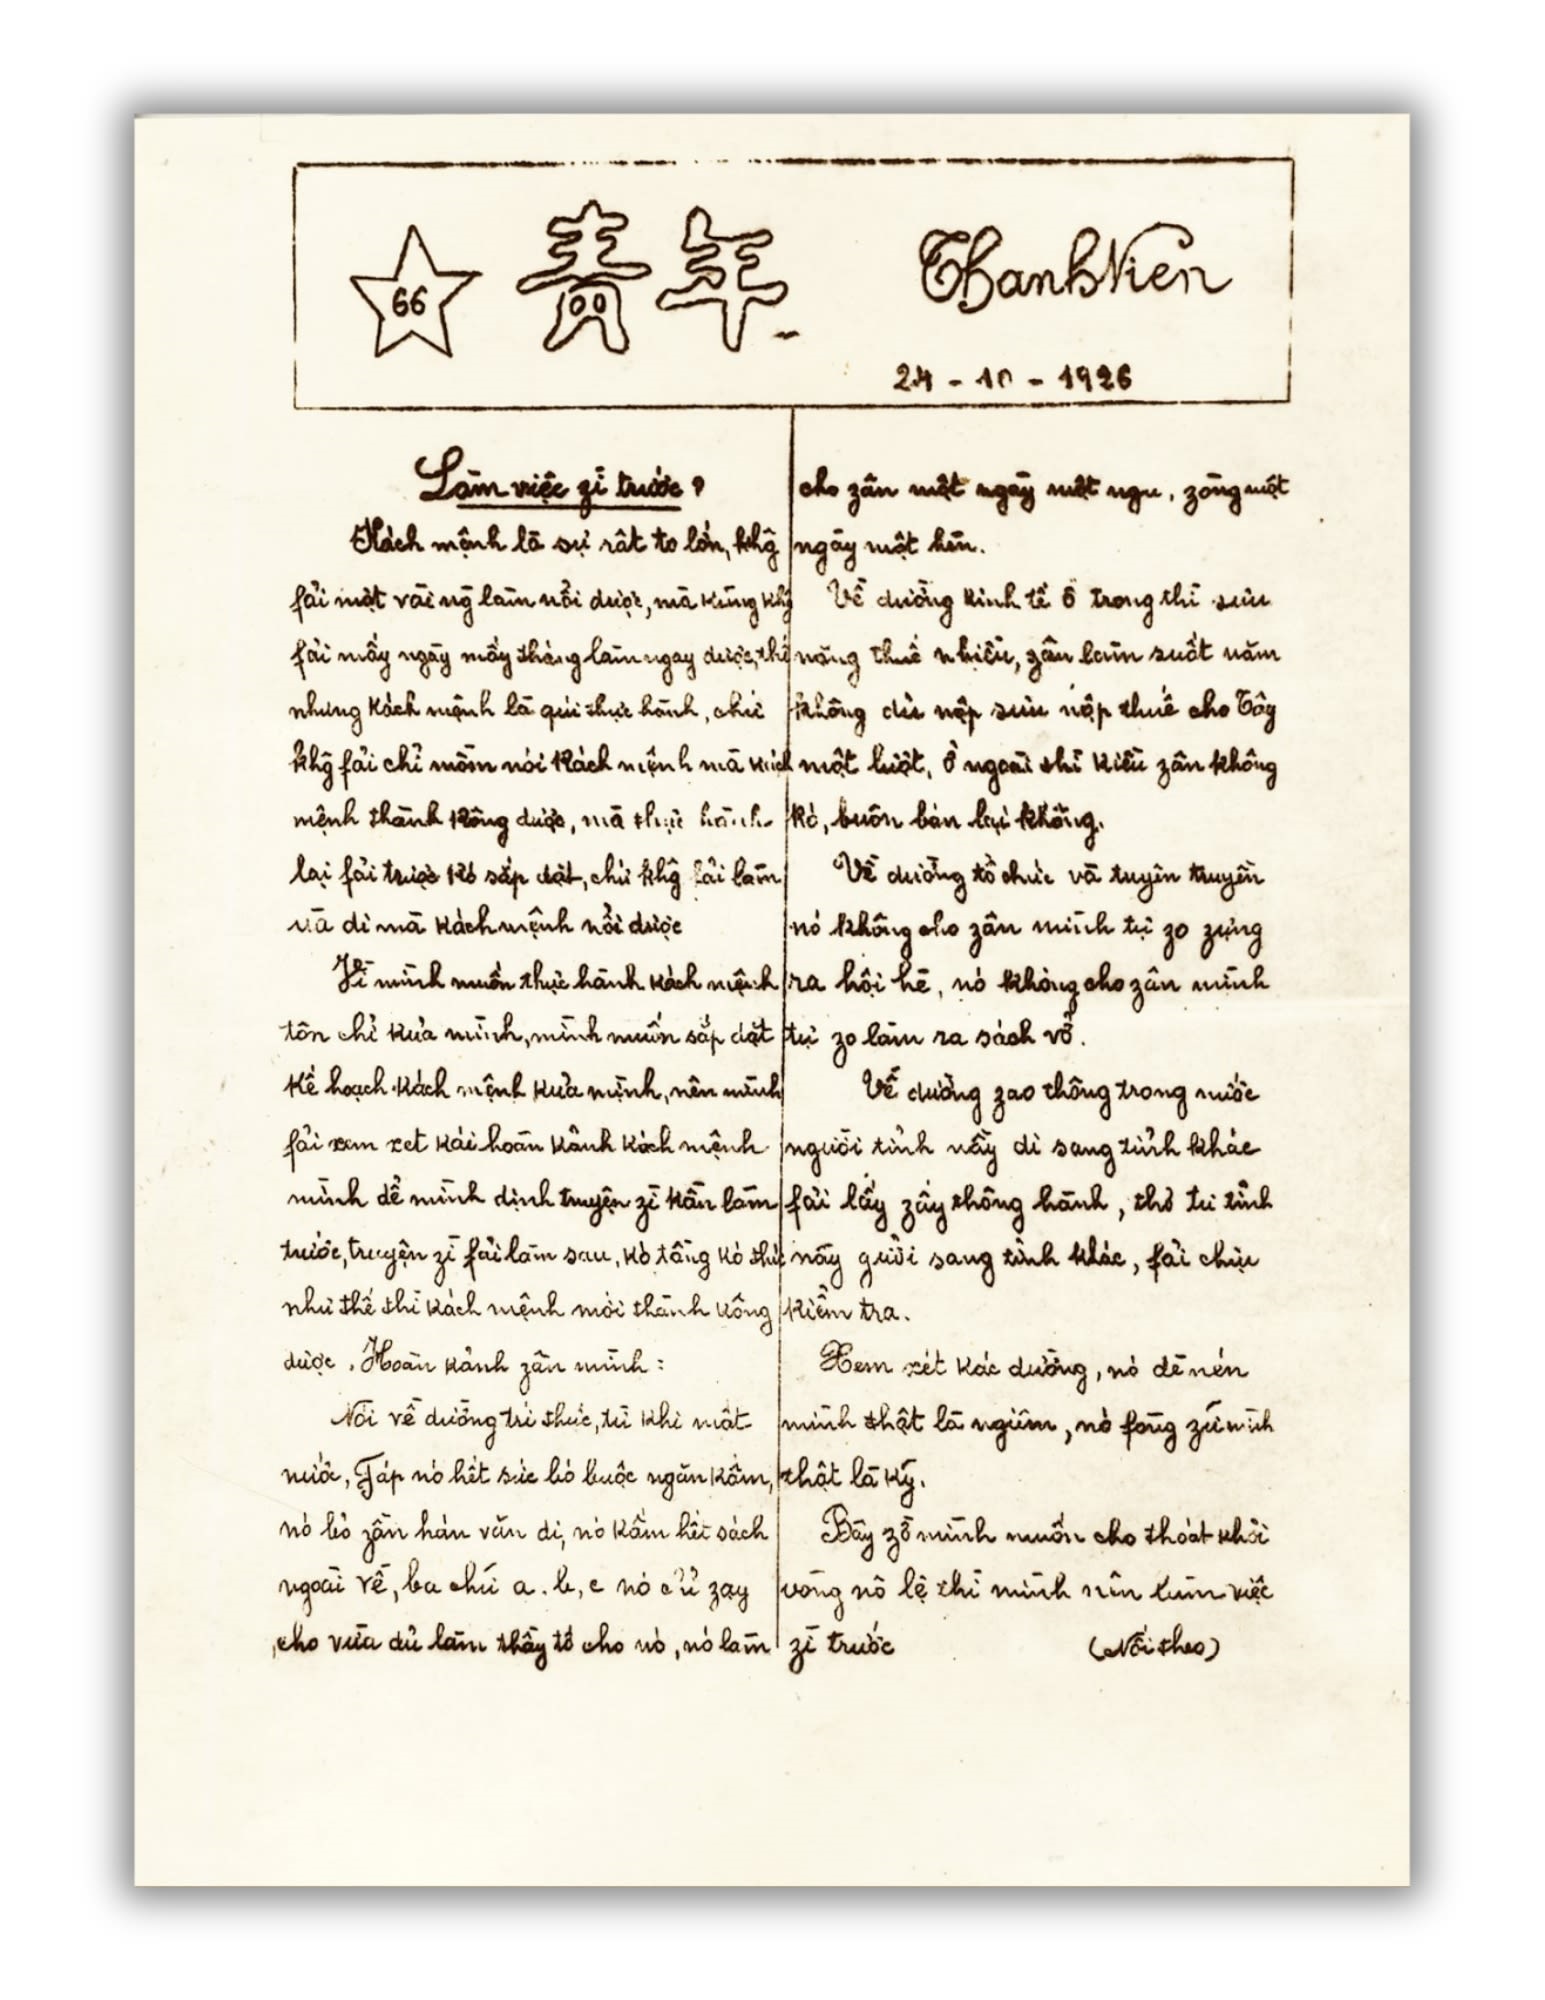 66
青年
Thanh Niên
24 - 10 - 1926
Làm việc zì trước?
Kách mệnh là sự rất to lớn, khg̃
fải một vài ng̃ làm nổi dược, mà kũng khg̃
fải mấy ngày mấy tháng làm ngay dược, thế
nhưng kách mệnh là quí thực hành, chứ
khg̃ fải chỉ mồm nói kách mệnh mà kách
mệnh thành kông dược, mà thực hành
lại fải trước kó sắp dặt, chứ khg̃ fải làm
và di mà kách mệnh nổi dược
Vì mình muốn thực hành kách mệnh
tôn chỉ kủa mình, mình muốn sắp dặt
kế hoạch kách mệnh kủa mình, nên mình
fải xem xet kái hoàn kảnh kách mệnh
mình dể mình dịnh truyện zì kần làm
trước, truyện zì fải làm sau, kó tầng kó thứ
như thế thì kách mệnh mới thành kông
dược. Hoàn kảnh zân mình:
Nói về dường trí thức, từ khi mất
nước, Fáp nó hết sức bó buộc ngăn kấm,
nó bỏ zần hán văn di, nó kấm hết sách
ngoài về, ba chữ a. b, c nó chỉ zạy
cho vừa dủ làm thầy tớ cho nó, nó làm
cho zân một ngày một ngu, zòng một
ngày một hèn.
Về dường kinh tế ở trong thì sưu
nặng thuế nhiều, zân làm suốt năm
không dủ nộp sưu nộp thuế cho Tây
một lượt, ở ngoài thì kiều zân không
kó, buôn bán lại không.
Về dường tổ chức và tuyên truyền
nó không cho zân mình tự zo zựng
ra hội hè, nó không cho zân mình
tự zo làm ra sách vở.
Về dường zao thông trong nước
người tỉnh nầy di sang tỉnh khác
fải lấy zấy thông hành, thơ từ tỉnh
nầy gưởi sang tỉnh khác, fải chịu
kiểm tra.
Xem xét kác dường, nó dè nén
mình thật là ngiêm, nó fòng zữ mình
thật là kỹ.
Bây zờ mình muốn cho thoát khỏi
vòng nô lệ thì mình nên làm việc
zì trước (Nối theo)